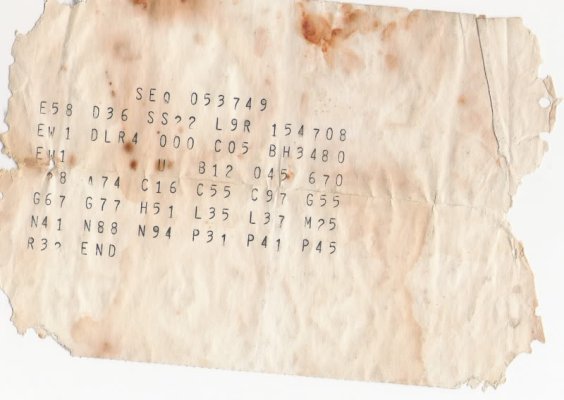 SEQ 053749
E58 D36 L9R 154708
EW1 DLR4 000 C05 BH3480
EW1 U B12 045 670
A74 C16 C55 C97 G55
G67 G77 H51 L35 L37 M25
N41 N88 N94 P31 P41 P45
END